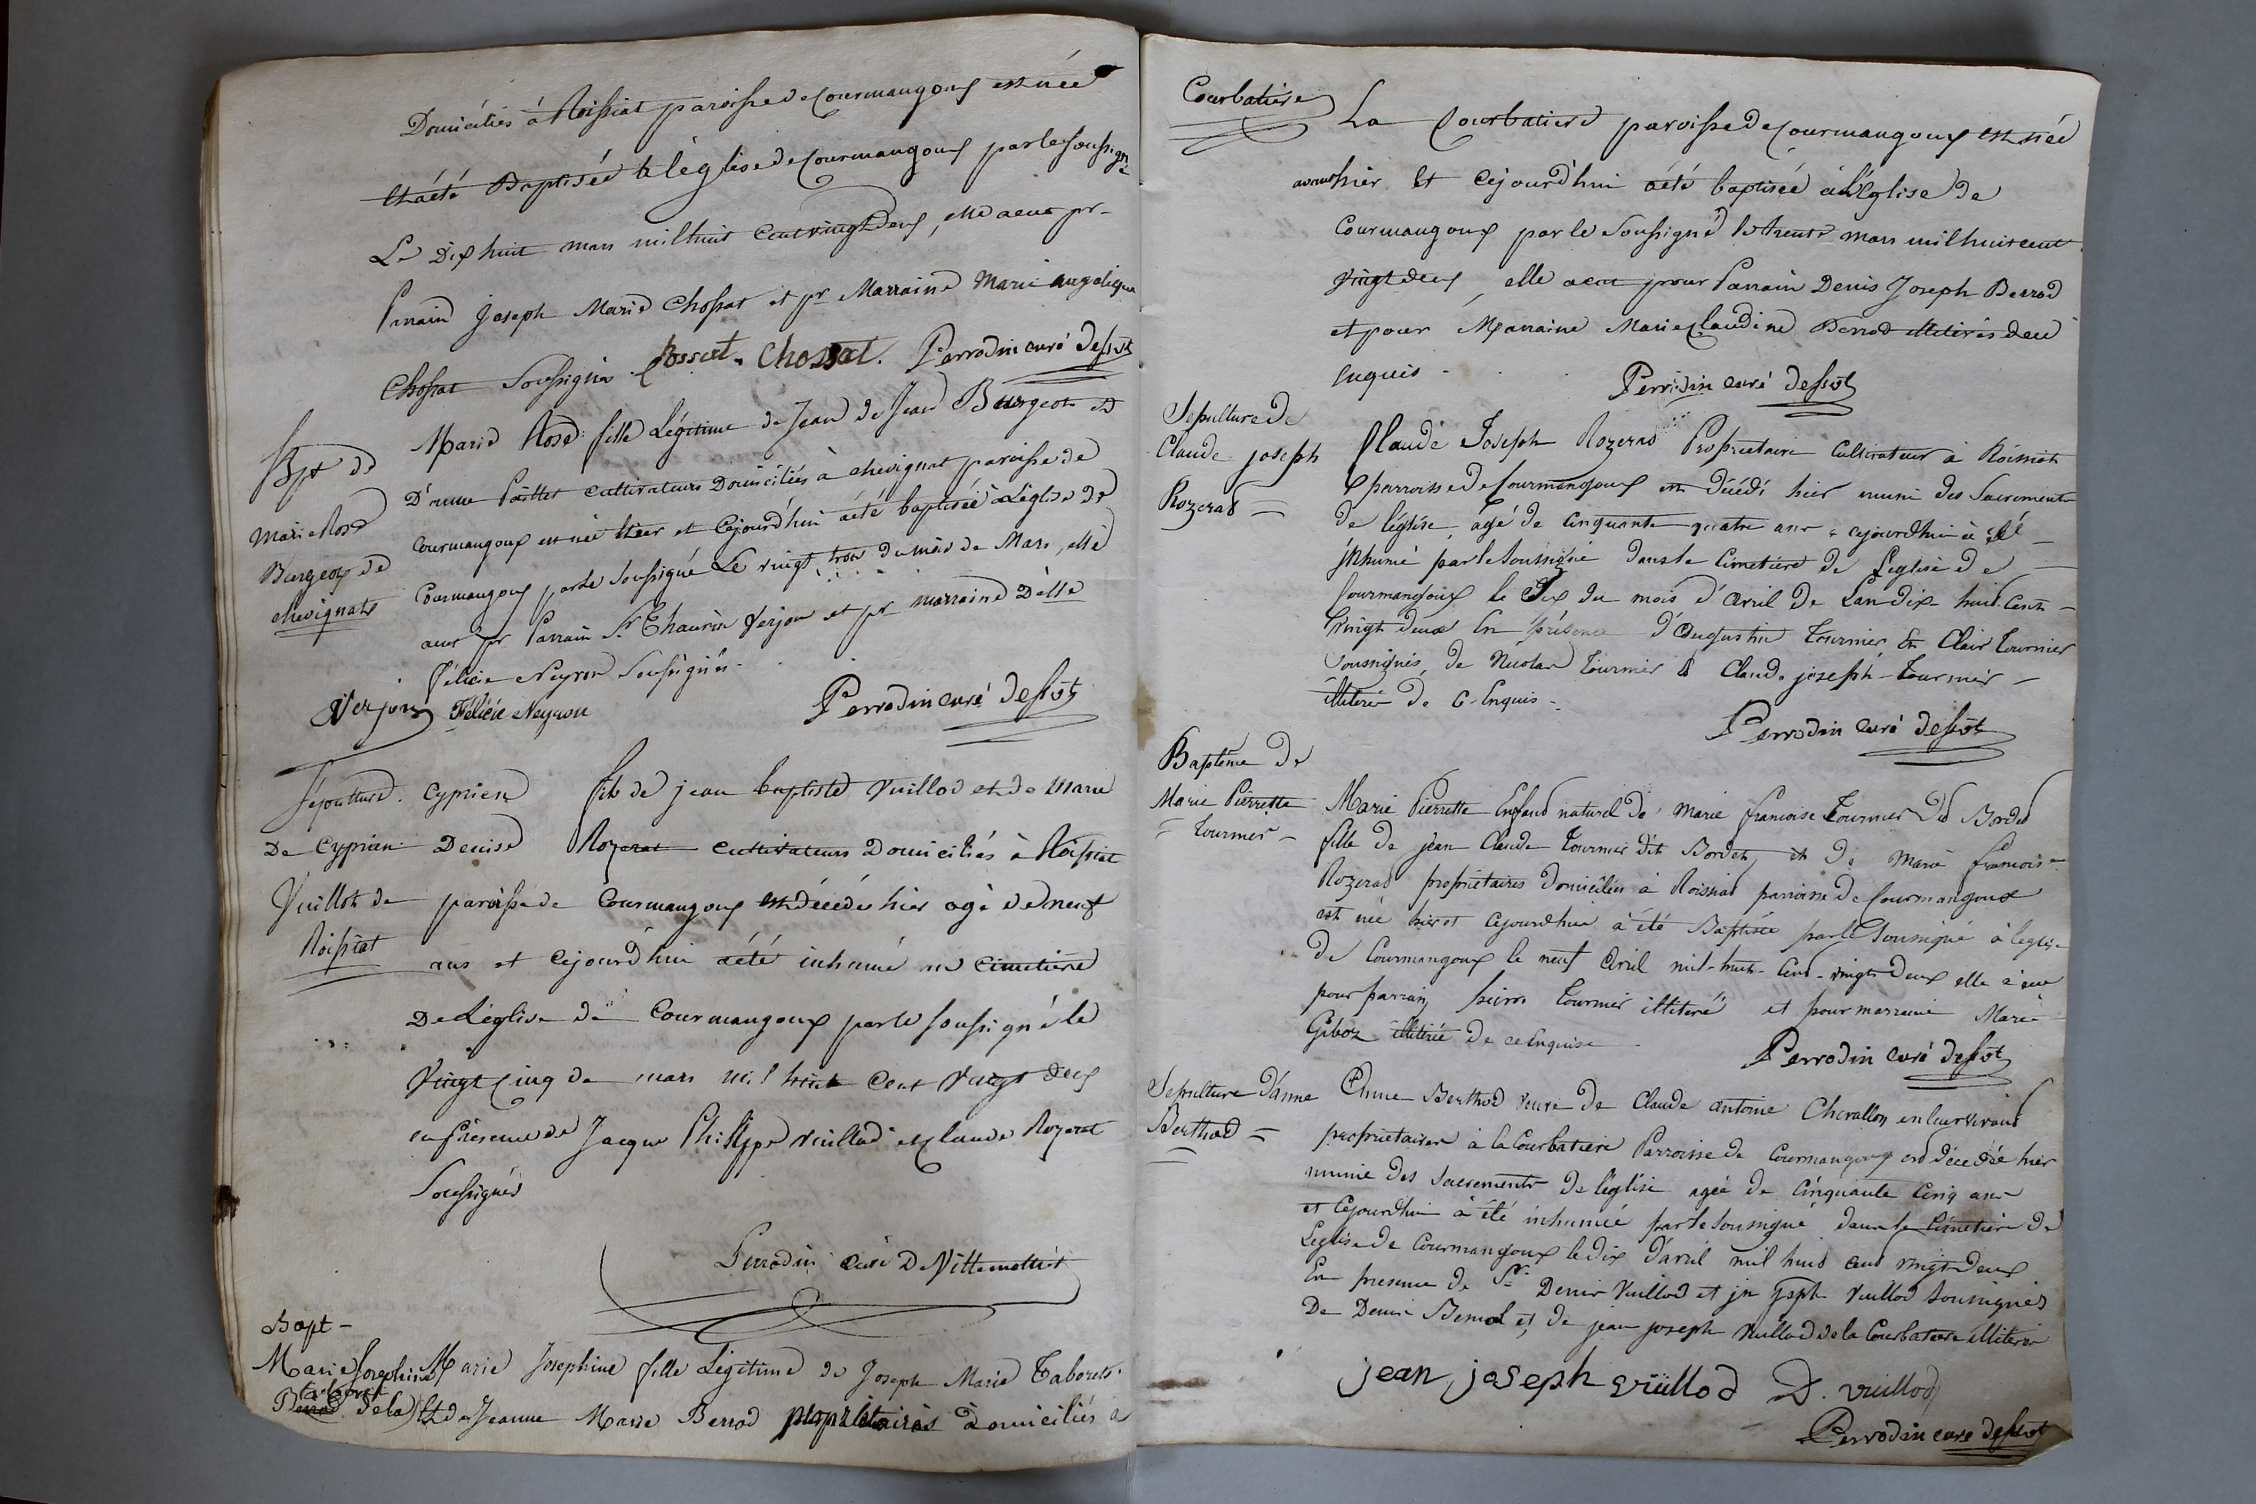 Domiciliés à Roissiat paroisse de Courmangoux est née
et a été Baptisée à l'église de Courmangoux par le soussigné
Le Dix huit mars mil huit cent vingt deux, elle a eu pr
Parrain Joseph Marie Chossat et pr Marraine Marie angelique
Chossat soussignés Chossat. Perrodin curé desst
Bpt de
Marie Rose
Burgeon de
chevignat
Marie Rose fille Légitime de Jean de Jean Burgeon et
D'anne Paillet cultivateurs Domiciliés à chevignat paroisse de
Courmangoux est née hier et cejourd'hui a été baptisée à L'église de
Courmangoux par le soussigné Le vingt trois du mois de Mars, elle
a eu pr Parrain Sr Verjon et pr marraine Delle
Félicie Neyron soussignés
Verjon Félicie Neyron Perrodin curé desst
Sépulture
De Cyprien
Vuillot de
Roissiat
Cyprien fils de jean baptiste Vuillod et de Marie
Denise Rozerat cultivateurs Domiciliés à Roissiat
paroisse de Courmangoux est décédé hier agé de neuf
ans et cejourd'hui a été inhumé au cimetière
De L'église de Courmangoux par le soussigné le
Vingt cinq de mars mil huit cent vingt deux
en présence de Jacque Philippe Vuillod et claude Rozerat
Soussignés
Perrodin curé De Villemottier
Bapt
Marie Josephine
taboret
Berrod de la
Marie Josephine fille Légitime de Joseph Marie Taboret
Et de Jeanne Marie Berrod propriétaires domiciliés a
Courbatière
La Courbatiere paroisse de Courmangoux est née
avant hier Et cejourd'hui a été baptisée à l'Eglise de
Courmangoux par le Soussigné le trente mars mil huit cent
vingt deux, elle a eu pour Parrain Denis Joseph Berrod
et pour Marraine Marie Claudine Berrod illiterés de ce
enquis
Perrodin curé desst
Sepulture de
Claude joseph
Rozerat
Claude Joseph Rozerat Propriétaire Cultivateur à Roissiat
parroisse de Courmangoux est décédé hier muni des Sacrements
de l'église, âgé de cinquante quatre ans, cejourdhui à été
inhumé par le soussigné dans le Cimetière de l'église de
Courmangoux le Dix du mois d'avril de L'an dix huit Cent
vingt deux En présence d'augustin Tournier, & Clair Tournier
soussignés, de Nicolas Tournier & Claude joseph Tournier
illiteré de C Enquis
Perrodin curé desst
Baptême de
Marie Pierrette
Tournier
Marie Pierrette Enfant naturel de marie françoise Tournier Dit Bordet
fille de jean Claude Tournier dit Bordet, et de Marie françoise
Rozerat propriétaires domiciliés à Roissiat parroisse de Courmangoux
est née hier et cejourdhui à été Baptisée par le soussigné à léglise
de Courmangoux le neuf avril mil huit cent vingt deux elle à eu
pour parrain pierre Tournier illiteré et pour marraine Marie
Giboz illitérée De ce Enquise
Perrodin curé desst
Sepulture d'anne
Berthod
Anne Berthod veuve de Claude antoine Chevallon en leur vivant
propriétaires à la Courbatiere Parroisse de Courmangoux est décédée hier
munie des sacrements de l'église agée de cinquante cinq ans
et cejourdhui à été inhumée par le soussigné dans le cimetière de
L'eglise de Courmangoux le dix d'avril mil huit cent vingt deux
En presence de Sr Denis Vuillod et jn jsph Vuillod soussignés
De Denis Berrod et, de jean joseph Vuillod de la Courbatiere illiterés
jean joseph vuillod D. vuillod
Perrodin curé desst